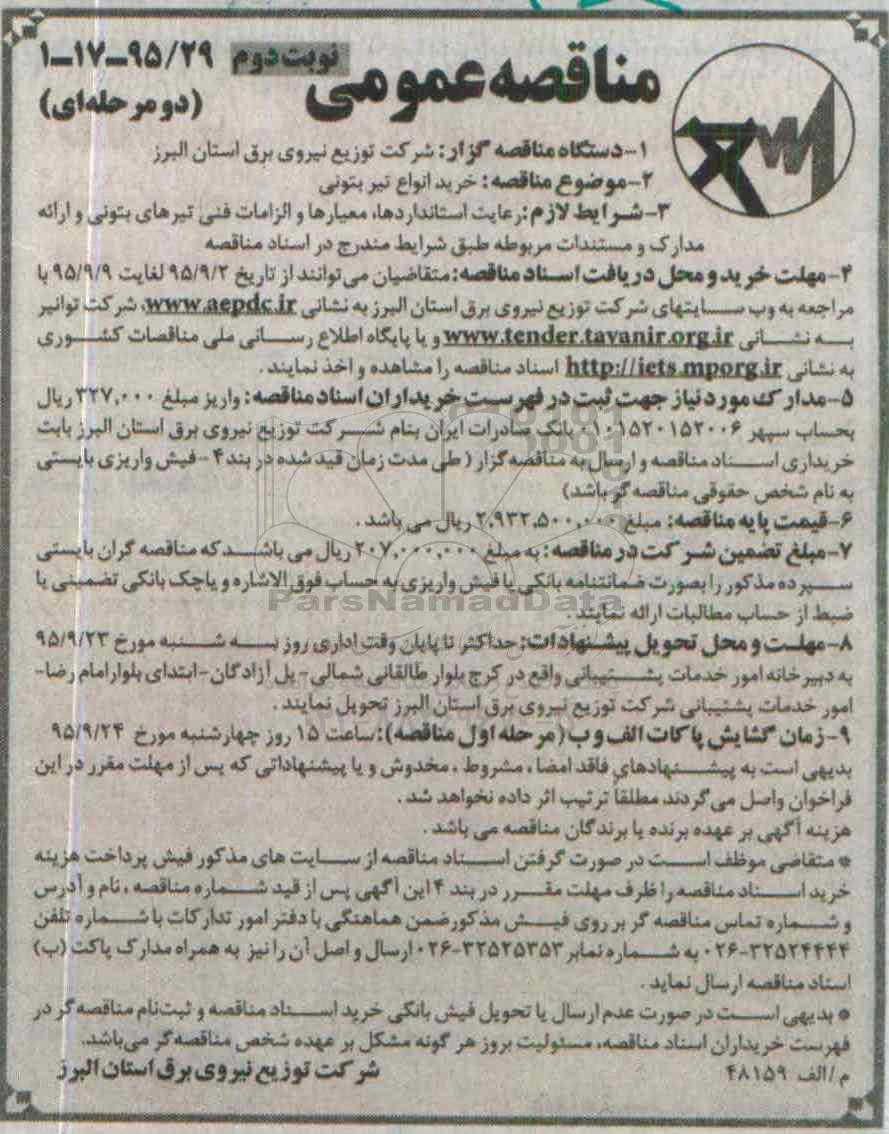 مناقصه عمومی
نوبت دوم ۹۵/۲۹-۱۷-۱
(دو مرحله‌ای)
۱-دستگاه مناقصه گزار: شرکت توزیع نیروی برق استان البرز
۲-موضوع مناقصه: خرید انواع تیر بتونی
۳-شرایط لازم: رعایت استانداردها، معیارها و الزامات فنی تیرهای بتونی و ارائه
مدارک و مستندات مربوطه طبق شرایط مندرج در اسناد مناقصه
۴-مهلت خرید و محل دریافت اسناد مناقصه: متقاضیان می‌توانند از تاریخ ۹۵/۹/۲ لغایت ۹۵/۹/۹ با
مراجعه به وب سایتهای شرکت توزیع نیروی برق استان البرز به نشانی www.aepdc.ir، شرکت توانیر
به نشانی www.tender.tavanir.org.ir و یا پایگاه اطلاع رسانی ملی مناقصات کشوری
به نشانی http://iets.mporg.ir اسناد مناقصه را مشاهده و اخذ نمایند.
۵-مدارک مورد نیاز جهت ثبت در فهرست خریداران اسناد مناقصه: واریز مبلغ ۳۲۷,۰۰۰ ریال
بحساب سپهر ۰۱۰۱۵۲۰۱۵۲۰۰۶ بانک صادرات ایران بنام شرکت توزیع نیروی برق استان البرز بابت
خریداری اسناد مناقصه و ارسال به مناقصه گزار (طی مدت زمان قید شده در بند ۴ -فیش واریزی بایستی
به نام شخص حقوقی مناقصه گر باشد)
۶-قیمت پایه مناقصه: مبلغ ۲,۹۳۲,۵۰۰,۰۰۰ ریال می باشد.
۷-مبلغ تضمین شرکت در مناقصه: به مبلغ ۲۰۷,۰۰۰,۰۰۰ ریال می باشد که مناقصه گران بایستی
سپرده مذکور را بصورت ضمانتنامه بانکی یا فیش واریزی به حساب فوق الاشاره و یا چک بانکی تضمینی یا
ضبط از حساب مطالبات ارائه نمایند.
ParsNamadData
۸-مهلت و محل تحویل پیشنهادات: حداکثر تا پایان وقت اداری روز سه شنبه مورخ ۹۵/۹/۲۳
به دبیرخانه امور خدمات پشتیبانی واقع در کرج بلوار طالقانی شمالی- پل آزادگان-ابتدای بلوار امام رضا-
امور خدمات پشتیبانی شرکت توزیع نیروی برق استان البرز تحویل نمایند.
۹-زمان گشایش پاکات الف و ب (مرحله اول مناقصه): ساعت ۱۵ روز چهارشنبه مورخ ۹۵/۹/۲۴
بدیهی است به پیشنهادهای فاقد امضا، مشروط، مخدوش و یا پیشنهاداتی که پس از مهلت مقرر در این
فراخوان واصل می گردند مطلقاً ترتیب اثر داده نخواهد شد.
هزینه آگهی بر عهده برنده یا برندگان مناقصه می باشد.
* متقاضی موظف است در صورت گرفتن اسناد مناقصه از سایت های مذکور فیش پرداخت هزینه
خرید اسناد مناقصه را ظرف مهلت مقرر در بند ۴ این آگهی پس از قید شماره مناقصه، نام و آدرس
و شماره تماس مناقصه گر بر روی فیش مذکور ضمن هماهنگی با دفتر امور تدارکات با شماره تلفن
۰۲۶-۳۲۵۲۴۴۴۴ به شماره نمابر ۰۲۶-۳۲۵۲۵۳۵۳ ارسال و اصل آن را نیز به همراه مدارک پاکت (ب)
اسناد مناقصه ارسال نماید.
* بدیهی است در صورت عدم ارسال یا تحویل فیش بانکی خرید اسناد مناقصه و ثبت‌نام مناقصه‌گر در
فهرست خریداران اسناد مناقصه، مسئولیت بروز هر گونه مشکل بر عهده شخص مناقصه‌گر می‌باشد.
م/الف ۴۸۱۵۹
شرکت توزیع نیروی برق استان البرز